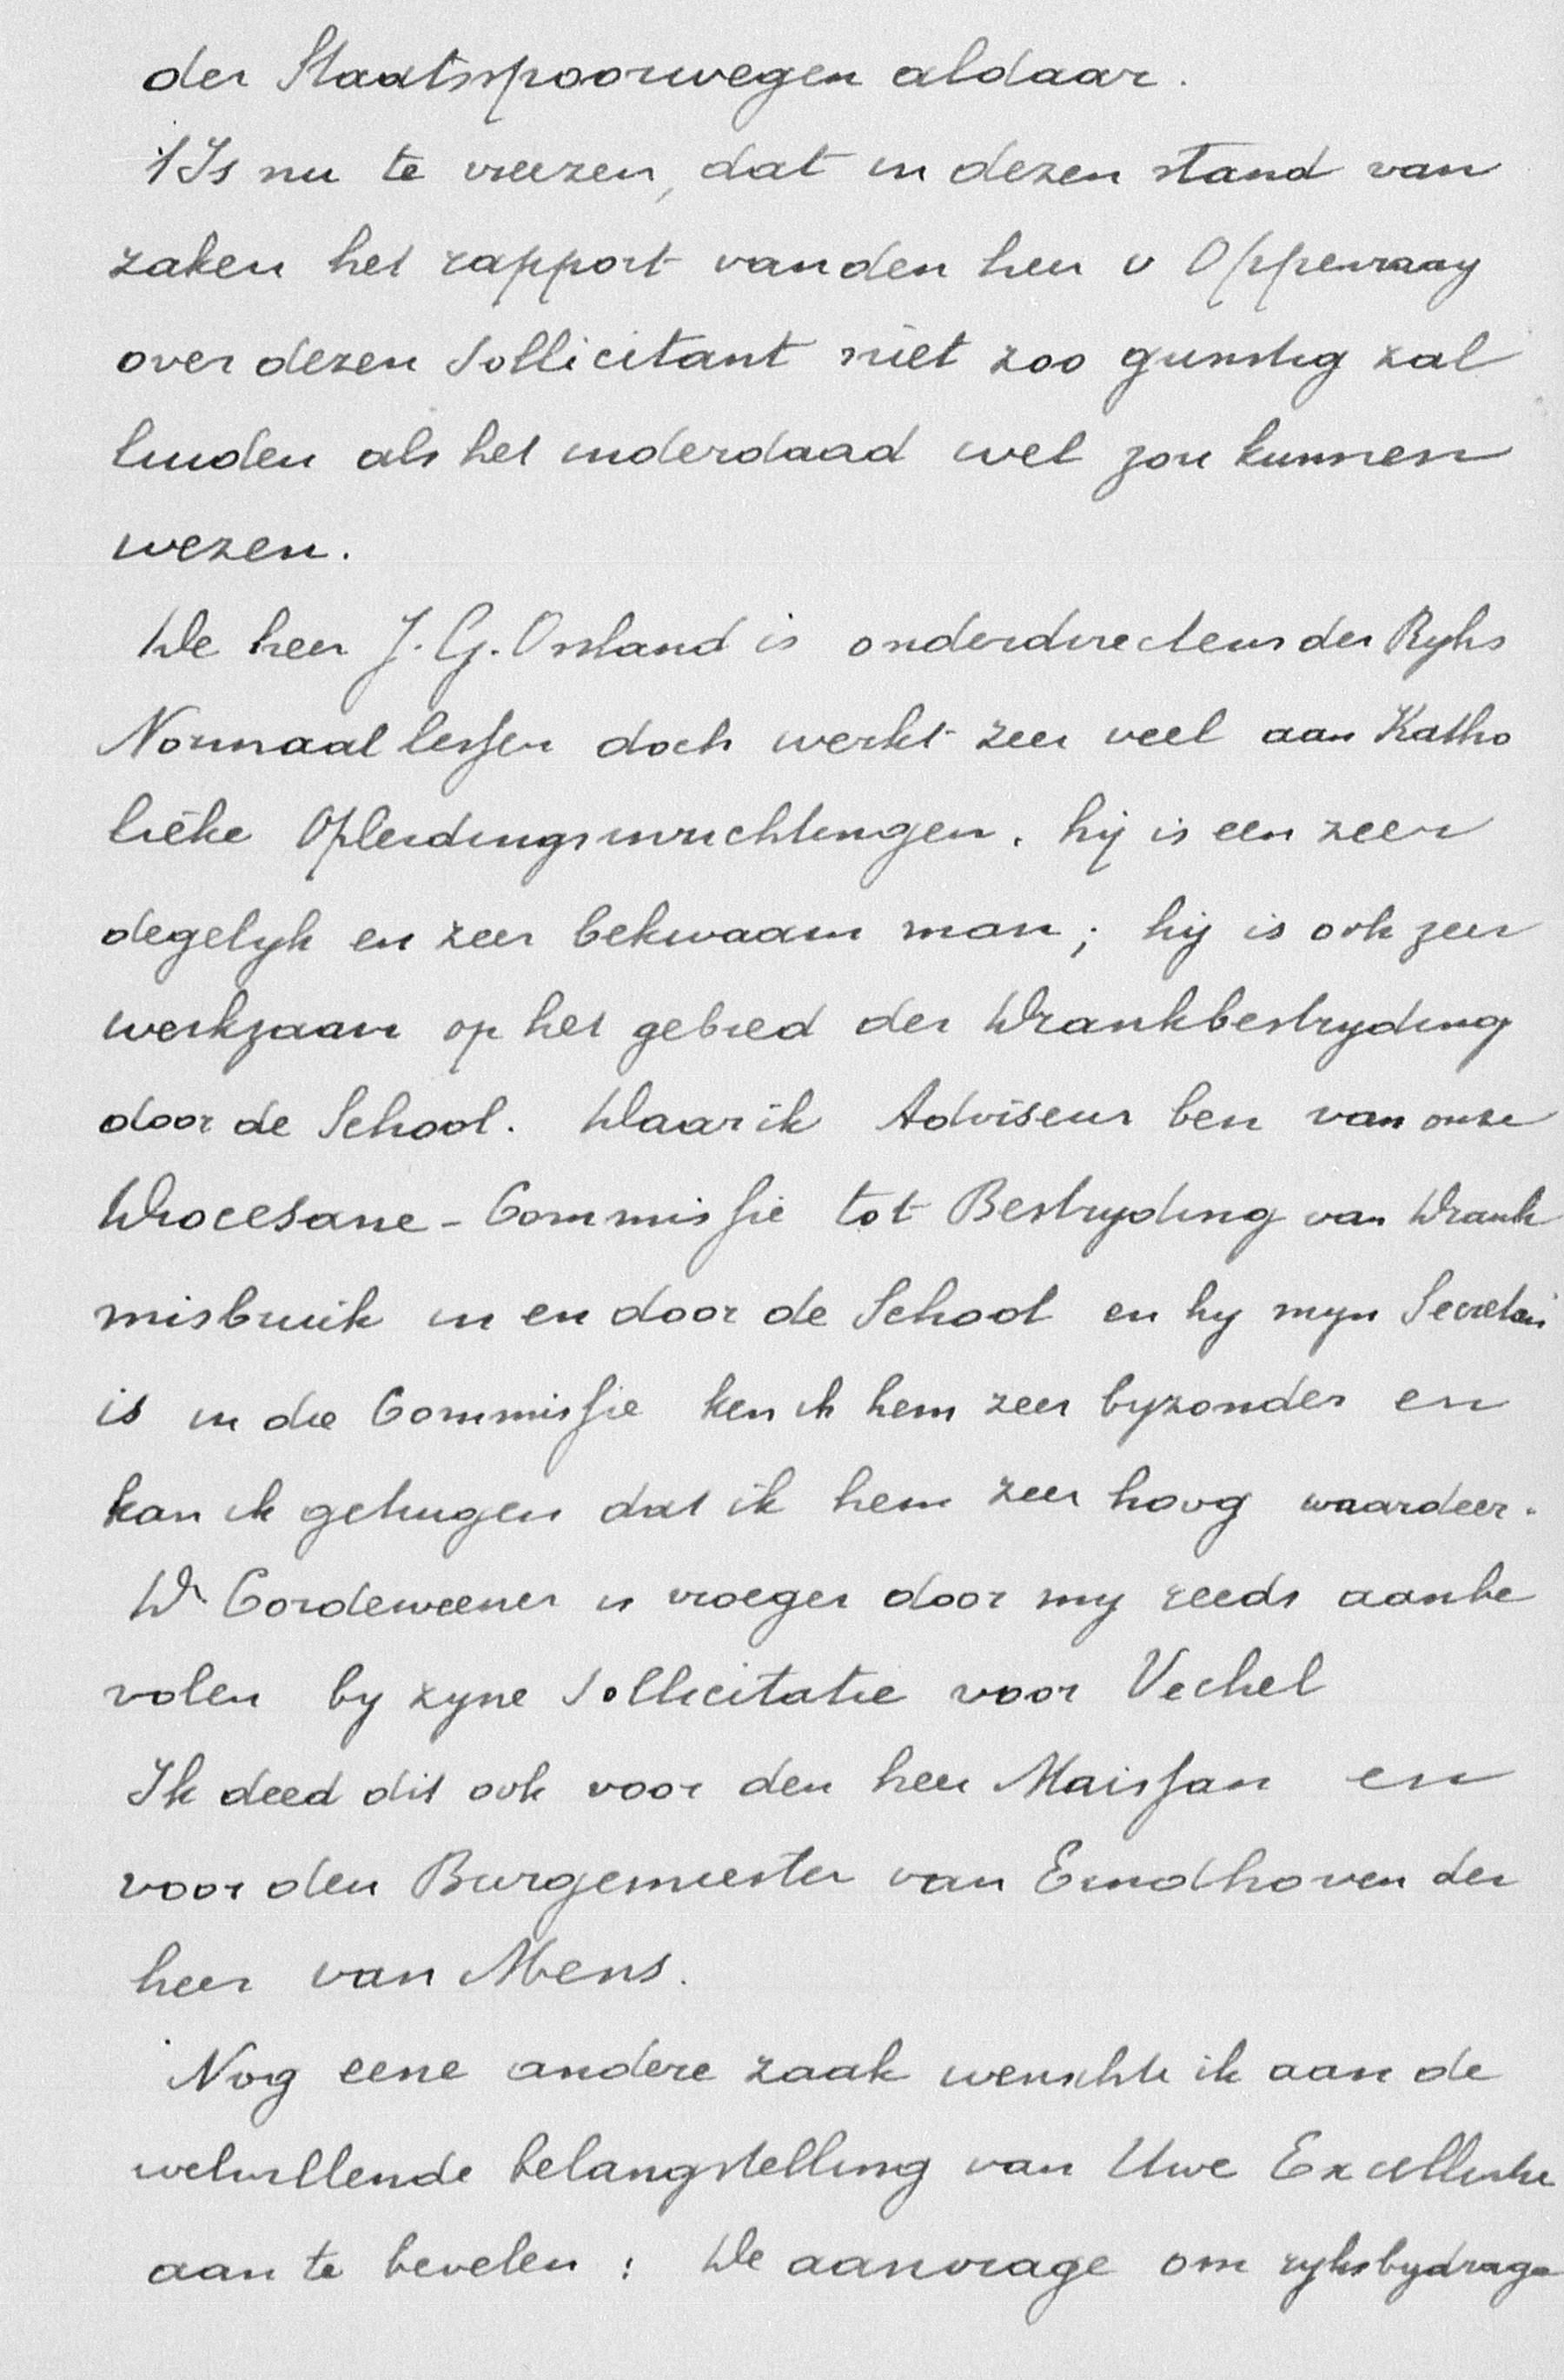 der Staatsspoorwegen aldaar.
't Is nu te vreezen, dat in dezen stand van
zaken het rapport van den heer v Oppenraay
over dezen sollicitant niet zoo gunstig zal
luiden als het inderdaad wel zou kunnen
wezen.
De heer J. G. Osland is onderdirecteur der Ryks
Normaallessen doch werkt zeer veel aan Katho
lieke Opleidingsinrichtingen. hij is een zeer
degelyk en zeer bekwaam man; hij is ook zeer
werkzaam op het gebied der Drankbestryding
door de School. Daar ik Adviseur ben van onze
Diocesane-Commissie tot Bestryding van Drank
misbruik in en door de School en hy myn Secretaris
is in die Commissie ken ik hem zeer byzonder en
kan ik getuigen dat ik hem zeer hoog waardeer.
Dr Cordeweener is vroeger door my reeds aanbe
volen by zyne sollicitatie voor Vechel
Ik deed dit ook voor den heer Maissan en
voor den Burgemeester van Eindhoven der
heer van Mens.
Nog eene andere zaak wenschte ik aan de
welwillende belangstelling van Uwe Excellentie
aan te bevelen: De aanvrage om ryksbydrage